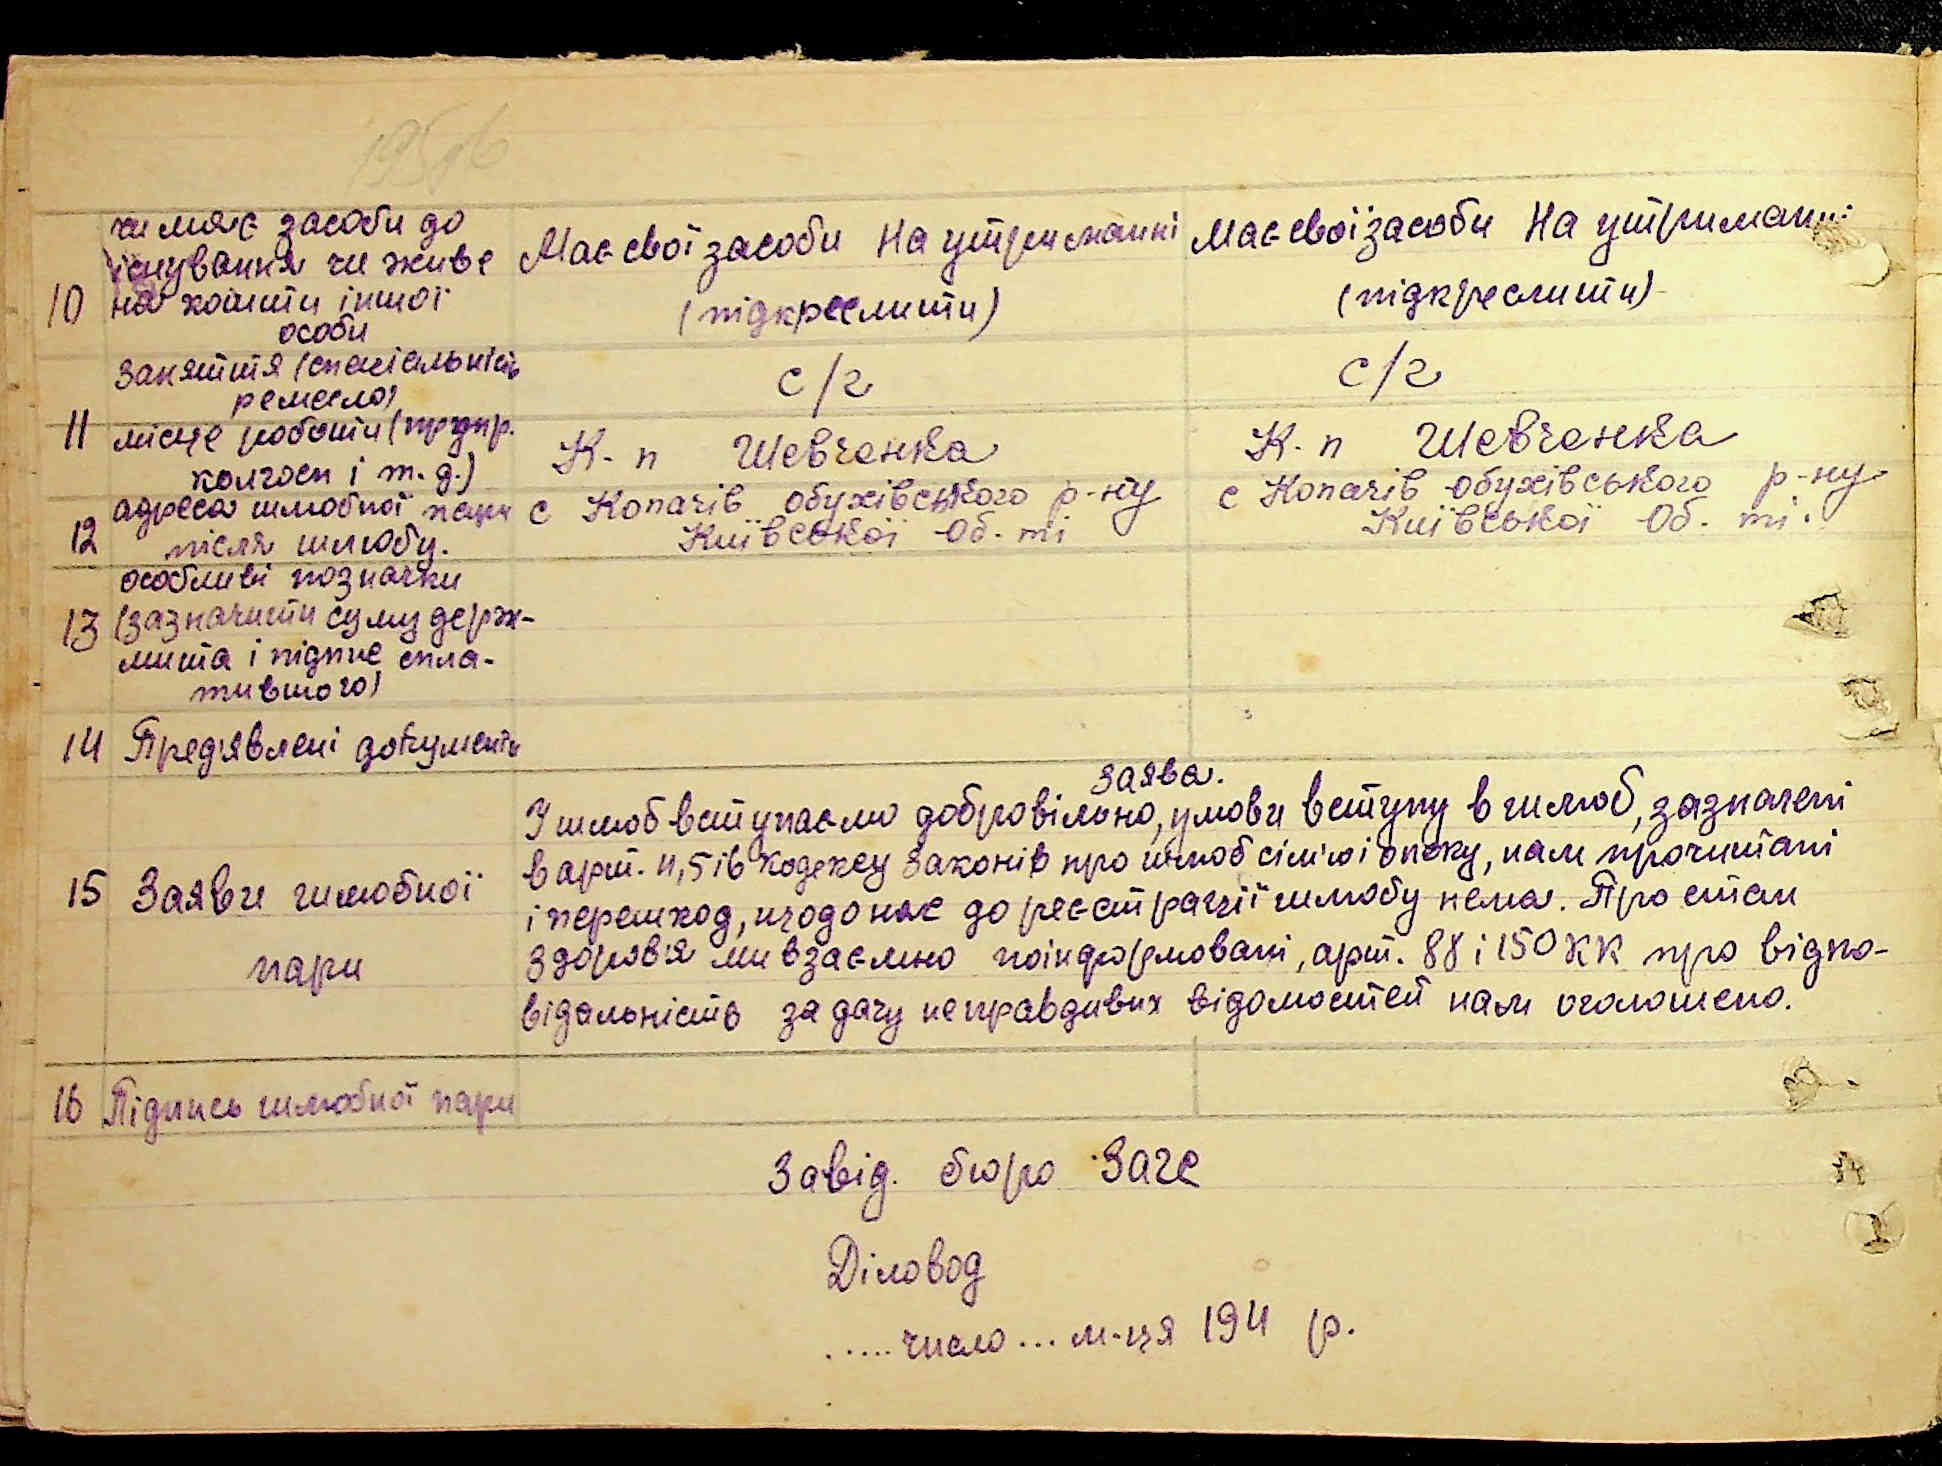 10
чи має засоби до
існування чи живе
на кошти іншої
особи
Має свої засоби На утриманні
(підкреслити)
Має свої засоби На утриманні
(підкреслити)
заняття (спеціальність
ремесло)
с/г
с/г
11
місце роботи (підпр.
колгосп і т. д.)
К-п Шевченка
К-п Шевченка
12
адреса шлюбної пари
після шлюбу.
с Копачів обухівського р-ну
Київської об. ті
с Копачів обухівського р-ну
Київської об. ті.
13
особливі позначки
(зазначити суму держ-
мита і підпис спла-
тившого)
14 Пред'явлені документи
15 Заяви шлюбної
пари
Заява.
У шлюб вступаємо добровільно, умови вступу в шлюб, зазначені
в арт. 4,5 і 6 кодексу Законів про шлюб сім'ю і опіку, нам прочитані
і перешкод, щодо нас до реєстрації шлюбу нема. Про стан
здоров'я ми взаємно поінформовані, арт. 88 і 150 КК про відпо-
відальність за дачу неправдивих відомостей нам оголошено.
16 Підпись шлюбної пари
Завід. бюро Загс
Діловод
..... число ... м-ця 194 р.